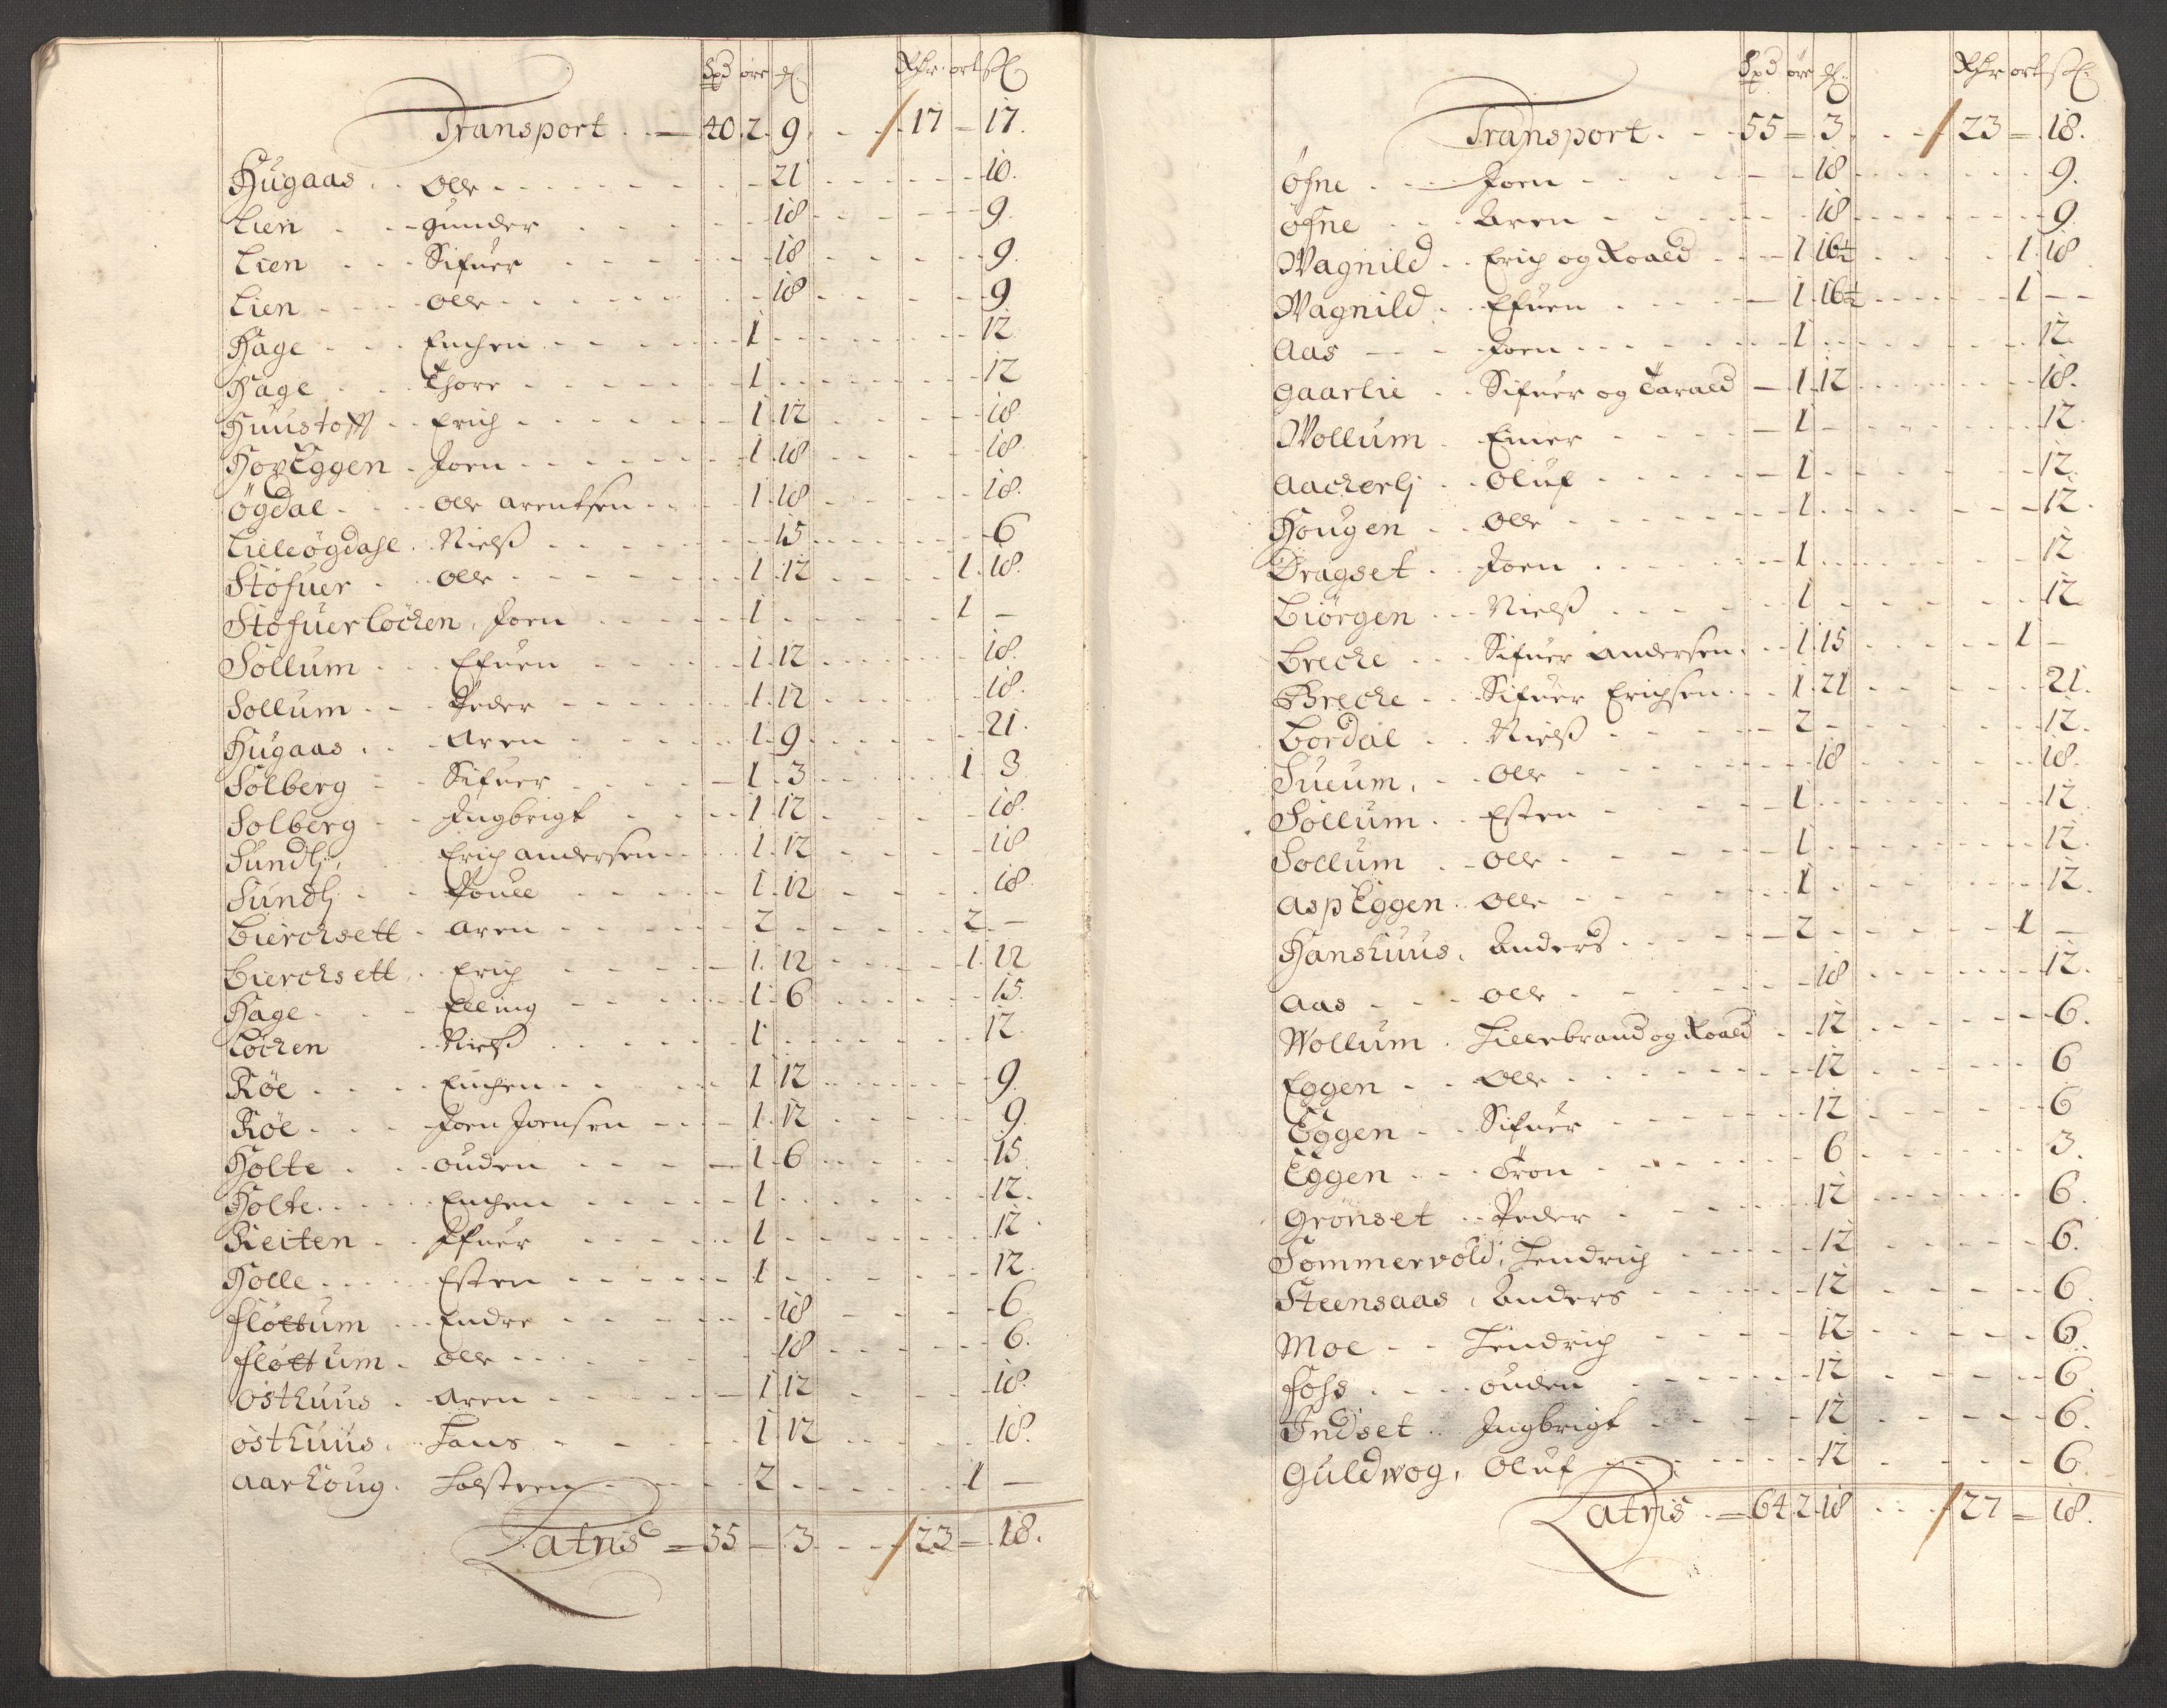 Spd øre d. Rdr ort s
Transport . — 40. 2. 9. . . 17 – 17.
Hugaas . . Olle . . . 21 . . . 10.
Lien . . gunder . . . 18 . . . 9.
Lien . . . Sifuer . . . 18 . . . 9.
Lien . . . Olle . . . 18 . . . 9
Hage . . . Enchen . . . 1 . . . 12
Hage . . . Thore . . . 1 . . . 12
Huustofft . . Erich . . . 1. 12 . . . 18
HovEggen . Joen . . . 1. 18 . . . 18.
Øgdal . . . Olle arentsen . . . 1. 18 . . . 18.
Lilleøgdahl . Nielß . . . 15 . . . 6
Støfuer . . Olle . . . 1. 12 . . . 1. 18.
Støfuerløchen, Joen . . . 1 . . . 1 –
Sollum . . . Efuen . . . 1. 12 . . . 18.
Sollum . . . Peder . . . 1. 12 . . . 18.
Hugaas . . . Aren . . . 1. 9 . . . 21.
Solberg . . Sifuer . . . 1. 3 . . . 1. 3
Solberg . . Ingbrigt . . . 1. 12 . . . 18.
Sundlj, Erich andersen . . . 1. 12 . . . 18
Sundlj . . Pouell . . . 1. 12 . . . 18
Bierchsett . aren . . . 2 . . . 2. –
Bierchsett . . Erich . . . 1. 12 . . . 1. 12
Hage . . . Elling . . . 1. 6 . . . 15.
Løchen . Nielß . . . 1 . . . 12.
Røe . . . Enchen . . . 1. 12 . . . 9.
Røe . . . Joen Joensen . . . 1. 12 . . . 9.
Holte . . . ouden . . . 1. 6 . . . 15.
Holte . . . Enchen . . . 1 . . . 12.
Reiten . . Ifuer . . . 1 . . . 12.
Holle . . . Esten . . . 1 . . . 12.
Fløttum . . Endre . . . 18 . . . 6
Fløttum . Olle . . . 18 . . . 6.
Østhuus . Aren . . . 1 12 . . . 18.
Østhuus . . Hans . . . 1 12 . . . 18.
Aarhoug . Holsteen . . . 2 . . . 1 –
Latris = 55 = 3 . . . 23 = 18.
Spd øre d. Rdr ort s
Transport . . . 55 = 3 . . . 23 = 18.
Øfne . . . Joen . . . 18 . . . 9.
Øfne . . . Aren . . . 18 . . . 9.
Wagnild . . Erich og Roald . . . 1 16½ . . . 1. 18
Wagnild . . Efuen . . . 1. 16½ . . . 1 – –
Aas . . . Joen . . . 1 . . . 12.
Gaarlie . . Sifuer og Tarald – 1. 12 . . . 18.
Wollum . Einer . . . 1 . . . 12.
Aacherlj . . Oluf . . . 1 . . . 12.
Hougen . . Olle . . . 1 . . . 12.
Dragset . . Joen . . . 1 . . . 12
Biörgen . . Nielß . . . 1 . . . 12.
Breche . . . Sifuer Andersen . . 1. 15 . . . 1 –
Breche . . Sifuer Erichsen . . 1. 21 . . . 21.
Bordal . . Nielß . . . 2 . . . 12.
Sueum . . Olle . . . 18 . . . 18.
Sollum . . Esten . . . 1 . . . 12.
Sollum . . Olle . . . 1 . . . 12.
AspEggen . Olle . . . 1 . . . 12.
Hanshuus . Anders . . . 2 . . . 1 –
Aas . . . Olle . . . 18 . . . 12.
Wollum . Hillebrand og Roald . . 12 . . . 6.
Eggen . . Olle . . . 12 . . . 6
Eggen . . Sifuer . . . 12 . . . 6
Eggen . . . Tron . . . 6 . . . 3.
Grønset . . Peder . . . 12 . . . 6.
Sommervold, Hendrich . . . 12 . . . 6.
Steensaas, Anders . . . 12 . . . 6.
Moe . . Hendrich . . . 12 . . . 6.
Foss . . . ouden . . . 12 . . . 6.
Indset . . Ingbrigt . . . 12 . . . 6.
Guldwog, Oluf . . . 12 . . . 6.
Latris . = 64 2 18 . . . 27 = 18.